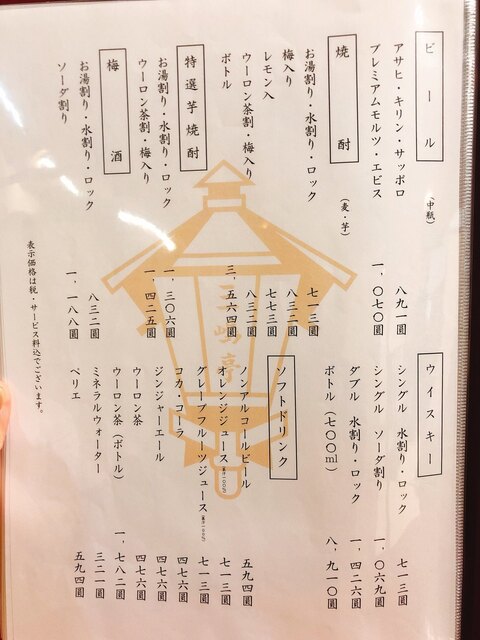 ビール
(中瓶)
アサヒ・キリン・サッポロ 八九一圓
プレミアムモルツ・エビス 一、〇七〇圓
焼酎
(麦・芋)
お湯割り・水割り・ロック 七一三圓
梅入り 八三二圓
レモン入 七七三圓
ウーロン茶割・梅入り 八三二圓
ボトル 三、五六四圓
特選芋焼酎
お湯割り・水割り・ロック 一、三〇六圓
ウーロン茶割・梅入り 一、四二五圓
梅酒
お湯割り・水割り・ロック 八三二圓
ソーダ割り 一、一八八圓
表示価格は税・サービス料込でございます。
ウイスキー
シングル 水割り・ロック 七一三圓
シングル ソーダ割り 一、〇六九圓
ダブル 水割り・ロック 一、四二六圓
ボトル(七〇〇ml) 八、九一〇圓
ソフトドリンク
ノンアルコールビール 五九四圓
オレンジジュース(果汁100%) 七一三圓
グレープフルーツジュース(果汁100%) 七一三圓
コカ・コーラ 四七六圓
ジンジャーエール 四七六圓
ウーロン茶 四七六圓
ウーロン茶(ボトル) 一、七八二圓
ミネラルウォーター 三二一圓
ペリエ 五九四圓